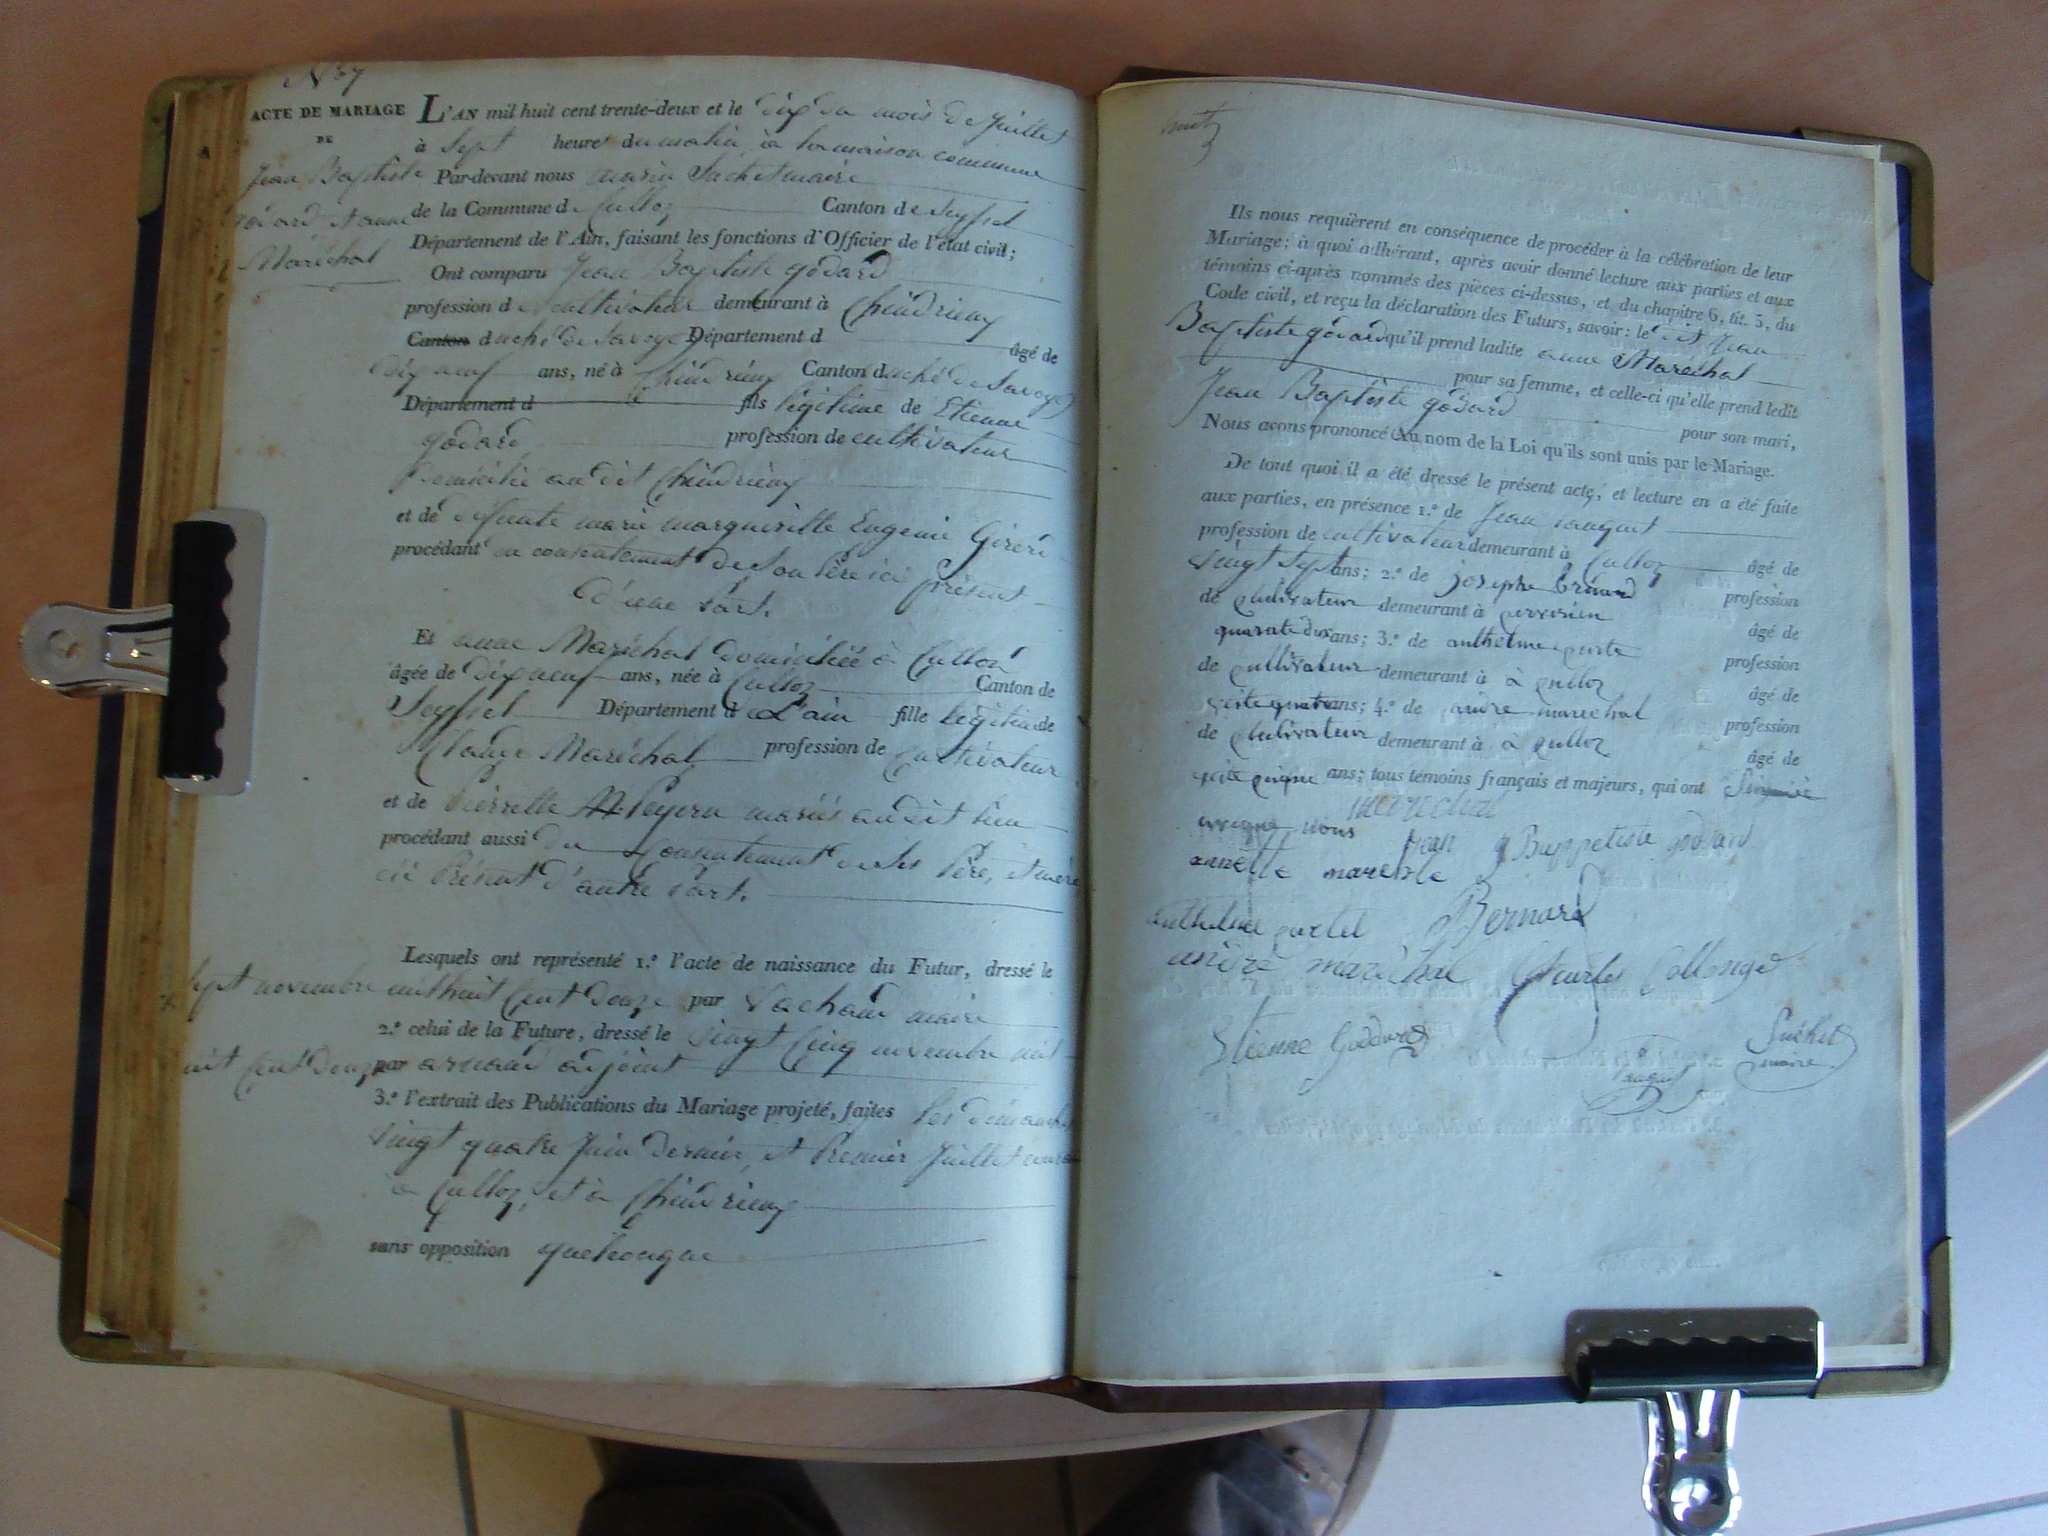 ACTE DE MARIAGE
DE
Jean Baptiste
godard et anne
Maréchal
L'AN mil huit cent trente-deux et le dix du mois de Juillet
à Sept heures du matin, à la maison commune
Par-devant nous maire
de la Commune de Culloz Canton de Seyssel
Département de l'Ain, faisant les fonctions d'Officier de l'état civil;
Ont comparu Jean Baptiste godard
profession de cultivateur demeurant à Chindrieux
Canton duché de Savoye Département d âgé de
dix neuf ans, né à Chindrieux Canton duché de Savoye
Département d fils légitime de Etienne
godard profession de cultivateur
domicilié au dit Chindrieux
et de défunte marie marguerittte Eugenie Gireré
procédant du consentement de Son Père ici présent
d'une Part.
Et anne Maréchal domiciliée à Culloz
âgée de dix neuf ans, née à Culloz Canton de
Seyssel Département de L'ain fille légitime de
Claude Maréchal profession de Cultivateur
et de Pierrette mariés au dit lieu
procédant aussi du Consentement de Ses Père, et mère
ici Présent d'autre Part.
Lesquels ont représenté 1.º l'acte de naissance du Futur, dressé le
Sept novembre mil huit Cent douze par maire
2.º celui de la Future, dressé le vingt Cinq novembre mil
huit Cent douze par arnaud adjoint
3.º l'extrait des Publications du Mariage projeté, faites Les dimanches
vingt quatre Juin dernier, et Premier Juillet courant
à Culloz, et à Chindrieux
sans opposition quelconque
Ils nous requièrent en conséquence de procéder à la célébration de leur
Mariage; à quoi adhérant, après avoir donné lecture aux parties et aux
témoins ci-après nommés des pièces ci-dessus, et du chapitre 6, tit. 5, du
Code civil, et reçu la déclaration des Futurs, savoir: le dit Jean
Baptiste godard qu'il prend ladite anne Maréchal
pour sa femme, et celle-ci qu'elle prend ledit
Jean Baptiste godard pour son mari,
Nous avons prononcé au nom de la Loi qu'ils sont unis par le Mariage.
De tout quoi il a été dressé le présent acte, et lecture en a été faite
aux parties, en présence 1.º de Jean
profession de cultivateur demeurant à Culloz âgé de
vingt Sept ans; 2.º de josephe profession
de cultivateur demeurant à âgé de
quarate dix ans; 3.º de anthelme profession
de cultivateur demeurant à à culloz âgé de
ans; 4.º de andre marechal profession
de cultivateur demeurant à à culloz âgé de
ans; tous témoins français et majeurs, qui ont
nous marechal
jean Bappetiste godard
annette
anthelme Bernard
andré maréchal Charles Collonge
Etienne Godard
maire